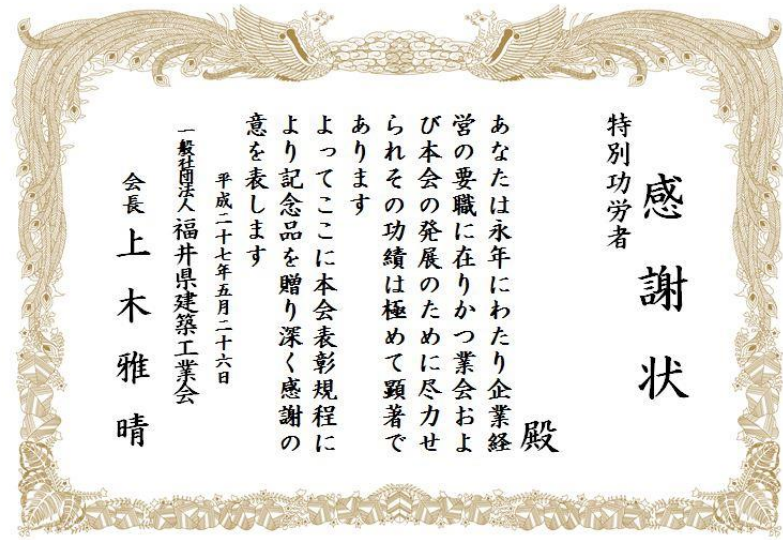 感謝状
特別功労者
殿
あなたは永年にわたり企業経
営の要職に在りかつ業会およ
び本会の発展のために尽力せ
られその功績は極めて顕著で
あります
よってここに本会表彰規程に
より記念品を贈り深く感謝の
意を表します
平成二十七年五月二十六日
一般社団法人 福井県建築工業会
会長 上木雅晴